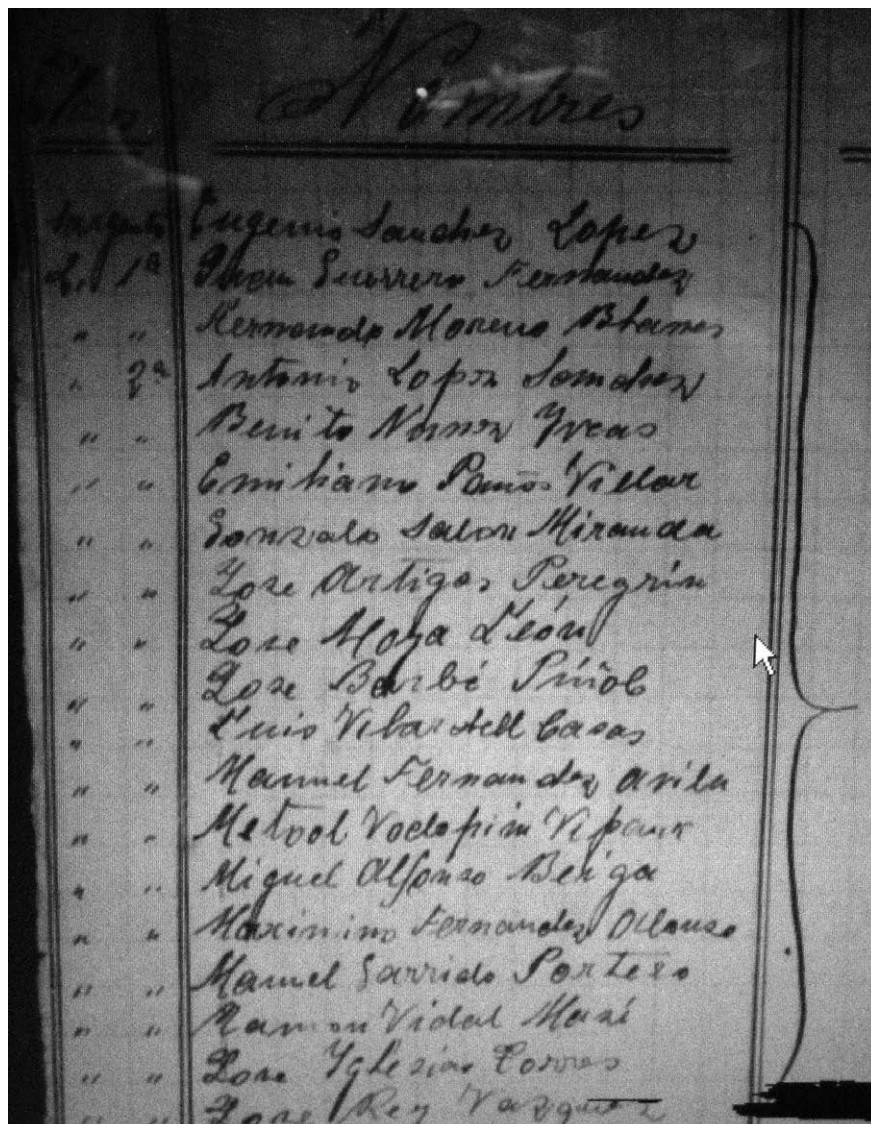 Nombres
Sargento Eugenio Sanchez Lopez
L. 1ª Juan Guerrero Fernandez
" " Hernando Moreno Blanes
" 2ª Antonio Lopez Sanchez
" " Benito Nunez
" " Emiliano Villar
" " Gonzalo Salon Miranda
" " Jose Artigas Peregrin
" " Jose Moya León
" " Jose Barbé Piñol
" " Luis Vilardell Casas
" " Manuel Fernandez Avila
" " Metool Vodopim
" " Miguel Alfonso Beiga
" " Maximino Fernandez Alonso
" " Manuel Garrido Portero
" " Ramon Vidal
" " Jose Yglesias Torres
" " Jose Rey Vazquez